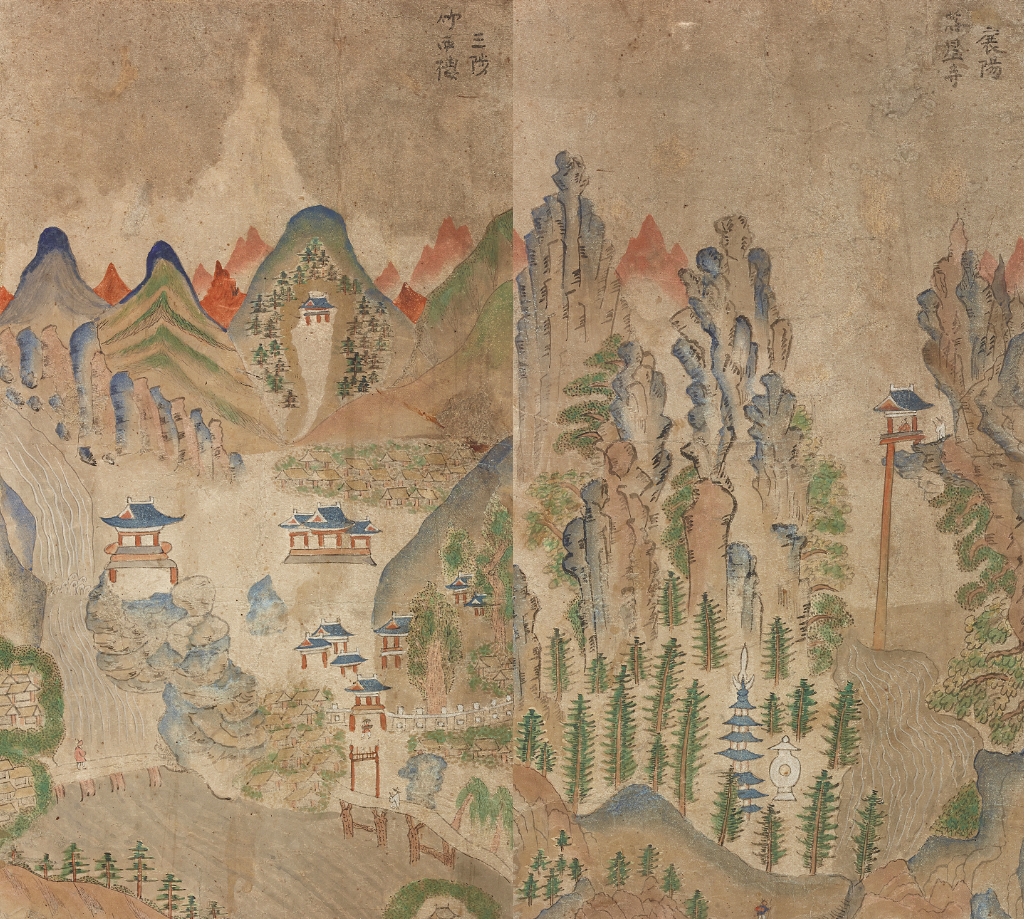 襄陽
寺
三陟
竹西樓